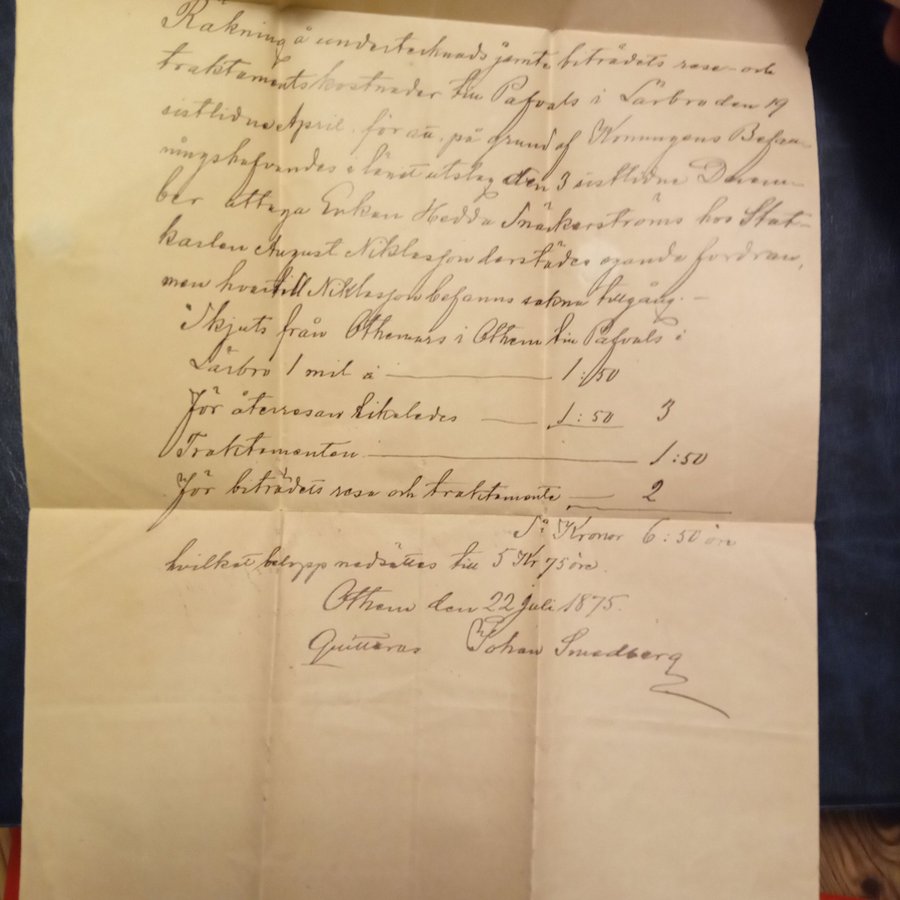 Räkning å undertecknads jämte biträdets rese- och
traktamentskostnader till Pafvals i Lärbro den 19
sistlidne April för att på grund af Konungens Befall-
ningshafvandes i länet utslag den 3 sistlidne Decem-
ber uttaga Enkan Hedda Snäckerströms hos Stat-
karlen August Niklasson derstädes egande fordran,
men hvartill Niklasson befanns sakna tillgång. —
Skjuts från Othemars i Othem till Pafvals i
Lärbro 1 mil á — 1:50
För återresan likaledes — 1:50 3
Traktamenten — 1:50
För biträdets resa och traktamente — 2
S:a Kronor 6:50 öre
hvilket belopp nedsättes till 5 Kr 75 öre.
Othem den 22 Juli 1875.
Quitteras Johan Smedberg